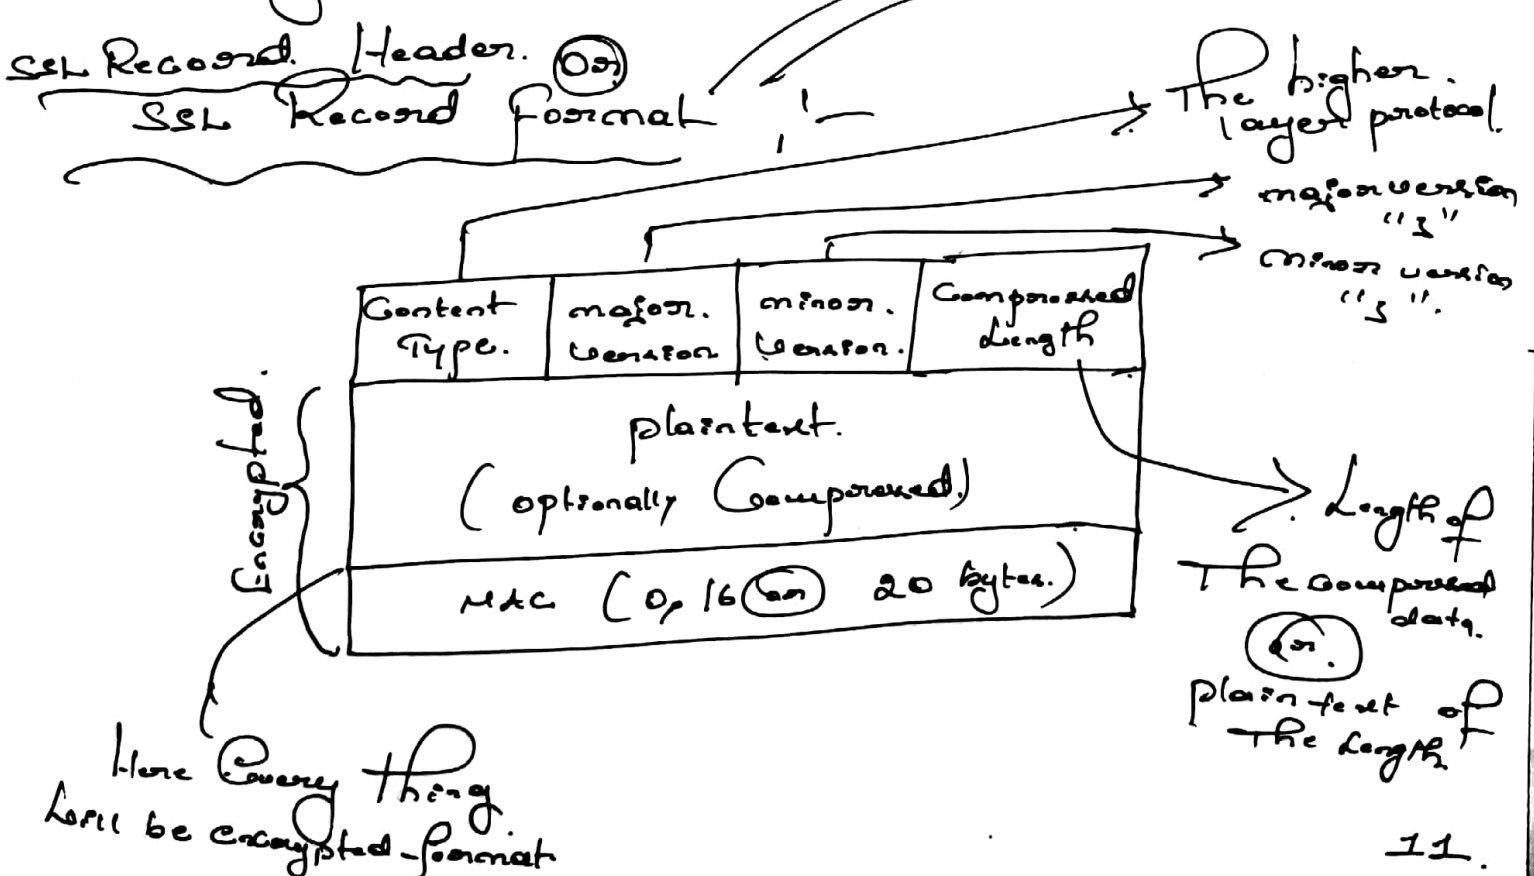 SSL Record Header. (or)
SSL Record Format :-
The higher.
layer protocol.
major version
"3"
minor version
"3".
Content
Type.
major.
version
minor.
version.
Compressed
Length
Encrypted.
plaintext.
(optionally Compressed)
MAC (0, 16 (or) 20 bytes.)
Length of
The compressed
data.
(or).
plain-text of
The Length
Here Every thing
will be encrypted-format.
11.